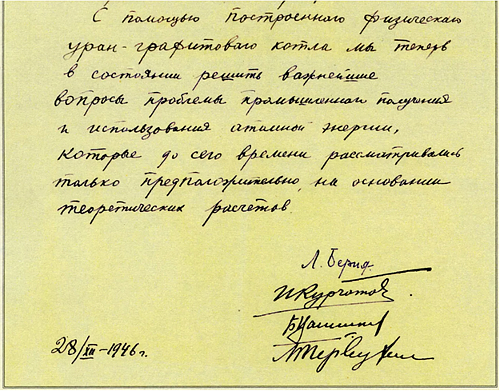 С помощью построенного физического
уран-графитового котла мы теперь
в состоянии решить важнейшие
вопросы проблемы промышленного получения
и использования атомной энергии,
которые до сего времени рассматривались
только предположительно, на основании
теоретических расчетов.
Л. Берия
И Курчатов.
Б Ванников
М Первухин
28/XII-1946 г.